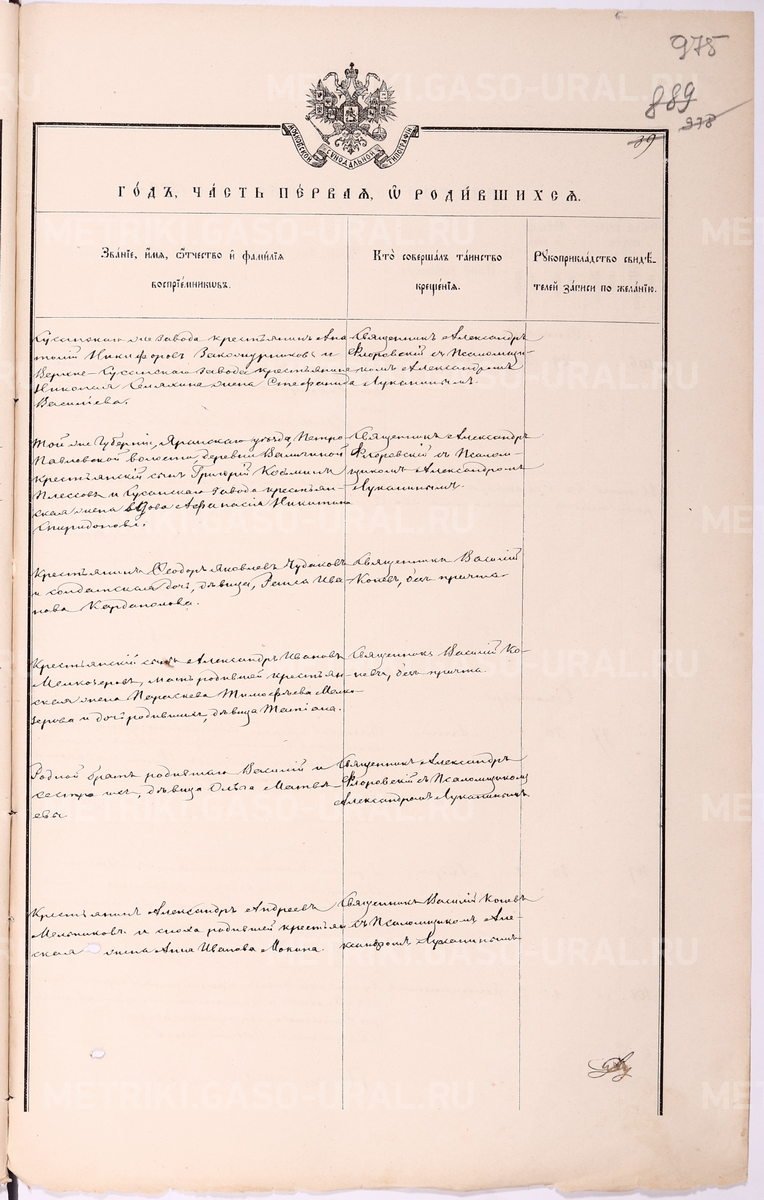 975
889
278
39
МОСКОВСКОЙ СѴНОДАЛЬНОЙ ТИПОГРАФІИ
ГО́ДЪ, ЧА́СТЬ ПЕ́РВАѦ, Ѡ҆ РОДИ́ВШИХСѦ.
Зва́нїе, и҆́мѧ, ѻ҆́тчество и҆ фами́лїѧ
воспрїе́мникѡвъ.
Кто̀ соверша́лъ та́инство
креще́нїѧ.
Рꙋкоприкла́дство свидѣ́-
телей за́писи по жела́нїю.
Кусинскаго же завода крестьянинъ Ана-
толій Никифоровъ и
Верхне-Кусинскаго завода крестьянина
Николая жена Стефанида
Васильева.
Священникъ Александръ
Флоровскій съ Псаломщи-
комъ Александромъ
Лукапинымъ.
Той же Губерніи, Яранскаго уѣзда, Петро-
Павловской волости, деревни
крестьянскій сынъ Григорій Козьминъ
и Кусинскаго завода крестьян-
ская жена вдова Афанасія Никитина
Спиридонова.
Священникъ Александръ
Флоровскій съ Псалом-
щикомъ Александромъ
Лукапинымъ.
Крестьянинъ Ѳеодоръ Яковлевъ Чудаковъ
и солдатская дочь, дѣвица, Раиса Ива-
нова Кардаполова.
Священникъ Василій
Коневъ, безъ причта.
Крестьянскій сынъ Александръ Ивановъ
Мелкозеровъ, мать родившей крестьян-
ская жена Параскева Тимофѣева Мелко-
зерова и дочь родившихъ, дѣвица Татіана.
Священникъ Василій Ко-
невъ, безъ причта.
Родной братъ родившаго Василій и
сестра их, дѣвица Ольга Матвѣ-
евы.
Священникъ Александръ
Флоровскій съ Псаломщикомъ
Александромъ Лукапинымъ.
Крестьянинъ Александръ Андреевъ
Мельниковъ и сноха родившей крестьян-
ская жена Анна Иванова Мокина.
Священникъ Василій Коневъ
съ Псаломщикомъ Але-
ксандромъ Лукапинымъ.
METRIKI.GASO-URAL.RU